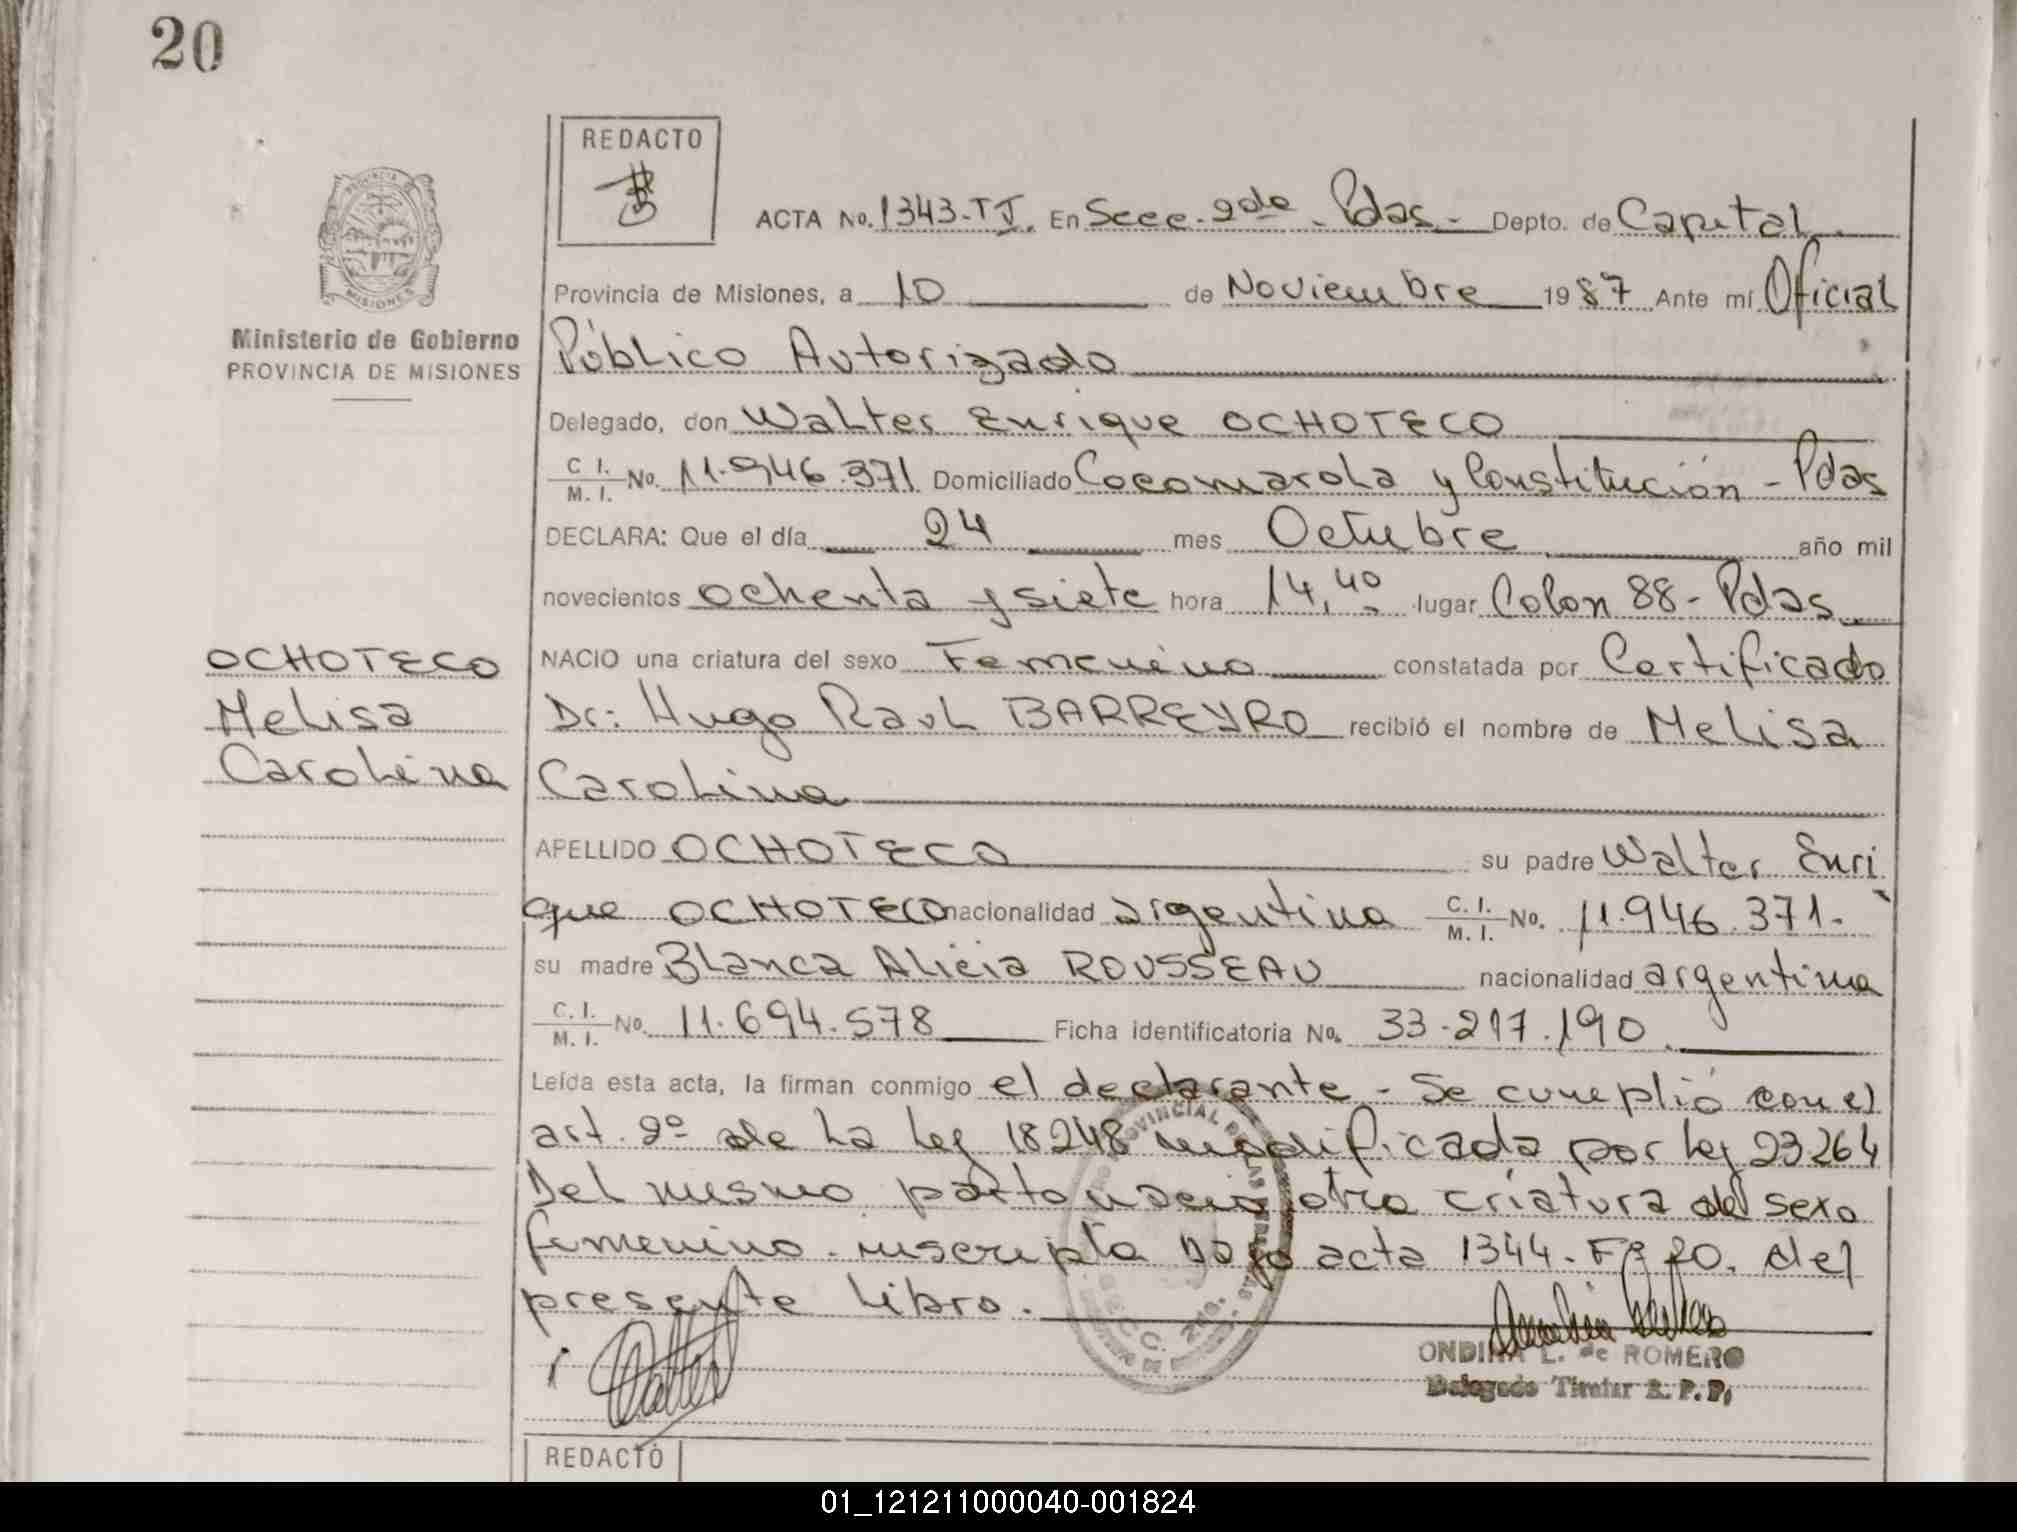 20
REDACTO
ACTA No. 1343-TI. En Secc. 2da - Pdas - Depto. de Capital
Provincia de Misiones, a 10 de Noviembre 1987 Ante mí Oficial
Público Autorizado
Ministerio de Gobierno
PROVINCIA DE MISIONES
Delegado, don Walter Enrique OCHOTECO
C. I. / M. I. No. 11.946.371 Domiciliado Cocomarola y Constitución - Pdas
DECLARA: Que el día 24 mes Octubre año mil
novecientos ochenta y siete hora 14,40 lugar Colon 88 - Pdas
NACIO una criatura del sexo Femenino constatada por Certificado
Dr: Hugo Raul BARREYRO recibió el nombre de Melisa
Carolina
OCHOTECO
Melisa
Carolina
APELLIDO OCHOTECO su padre Walter Enri
que OCHOTECO nacionalidad argentina C. I. / M. I. No. 11.946.371.-
su madre Blanca Alicia ROUSSEAU nacionalidad argentina
C. I. / M. I. No. 11.694.578 Ficha identificatoria No. 33.217.190
Leída esta acta, la firman conmigo el declarante - Se cumplió con el
art. 2º de la ley 18248 modificada por ley 23264
Del mismo parto nació otra criatura del sexo
femenino. inscripta bajo acta 1344. Fº 20. del
presente libro.
PROVINCIA DE
MISIONES
SECC. 2da.
ONDINA L. de ROMERO
Delegado Titular R. P. P.
REDACTÓ
01_121211000040-001824